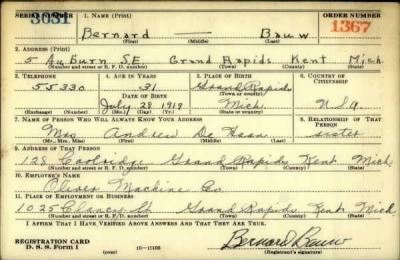 SERIAL NUMBER 3031
1. NAME (Print)
ORDER NUMBER 1367
Bernard — Bauw
(First) (Middle) (Last)
2. ADDRESS (Print)
5 Auburn S.E Grand Rapids Kent Mich.
(Number and street or R. F. D. number) (Town) (County) (State)
3. TELEPHONE
4. AGE IN YEARS
5. PLACE OF BIRTH
6. COUNTRY OF CITIZENSHIP
55330
31
Grand Rapids
(Town or county)
DATE OF BIRTH
July 28
Mich.
U S a
(Exchange) (Number)
(Mo.) (Day) (Yr.)
(State or country)
7. NAME OF PERSON WHO WILL ALWAYS KNOW YOUR ADDRESS
8. RELATIONSHIP OF THAT PERSON
Mrs Andrew De Haan sister
(Mr., Mrs., Miss) (First) (Middle) (Last)
9. ADDRESS OF THAT PERSON
128 Grand Rapids Kent Mich
(Number and street or R. F. D. number) (Town) (County) (State)
10. EMPLOYER'S NAME
Oliver Machine Co
11. PLACE OF EMPLOYMENT OR BUSINESS
1025 Clancy St Grand Rapids Kent Mich
(Number and street or R. F. D. number) (Town) (County) (State)
I AFFIRM THAT I HAVE VERIFIED ABOVE ANSWERS AND THAT THEY ARE TRUE.
REGISTRATION CARD
D. S. S. Form 1
Bernard Bauw
(Registrant's signature)